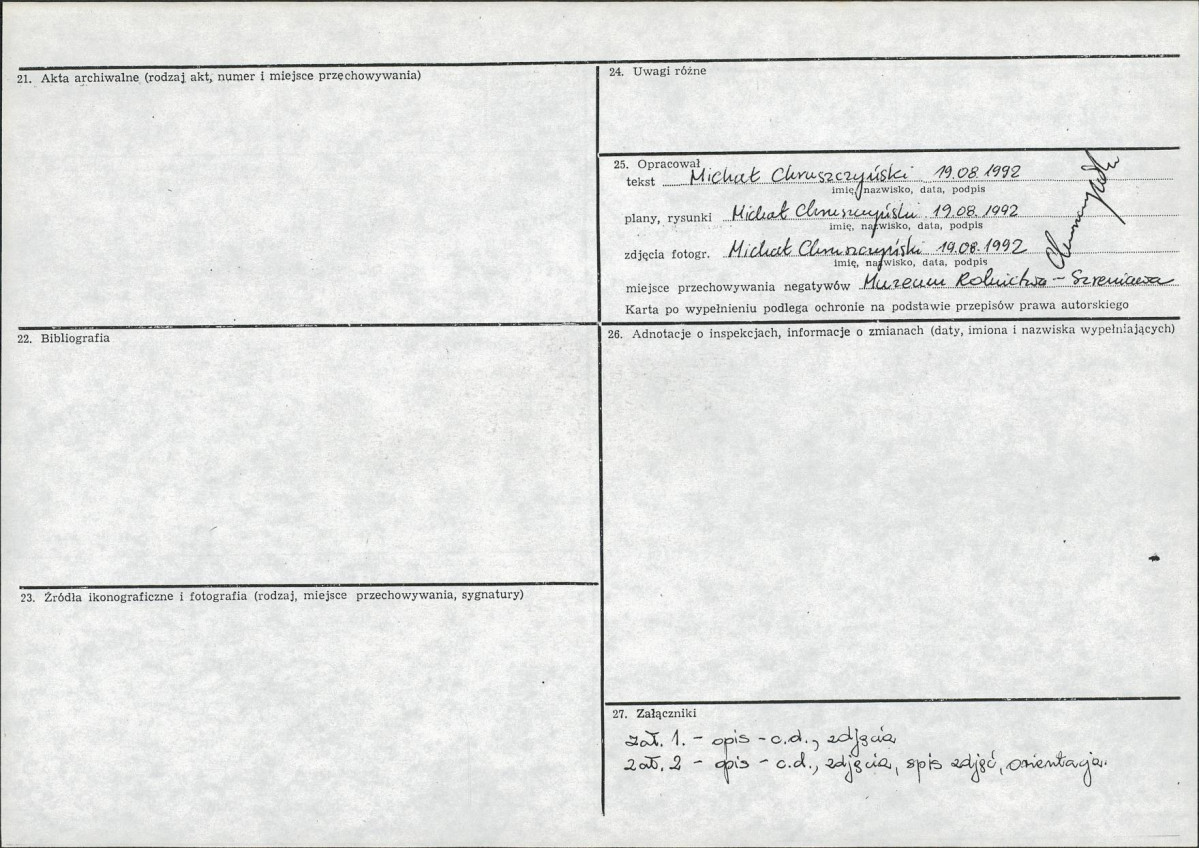 21. Akta archiwalne (rodzaj akt, numer i miejsce przechowywania)
22. Bibliografia
23. Źródła ikonograficzne i fotografia (rodzaj, miejsce przechowywania, sygnatury)
24. Uwagi różne
25. Opracował
tekst Michał Chruszczyński 19.08.1992
imię, nazwisko, data, podpis
plany, rysunki Michał Chruszczyński 19.08.1992
imię, nazwisko, data, podpis
zdjęcia fotogr. Michał Chruszczyński 19.08.1992
imię, nazwisko, data, podpis
miejsce przechowywania negatywów Muzeum Rolnictwa - Szreniawa
Karta po wypełnieniu podlega ochronie na podstawie przepisów prawa autorskiego
26. Adnotacje o inspekcjach, informacje o zmianach (daty, imiona i nazwiska wypełniających)
27. Załączniki
zał. 1. - opis - c.d., zdjęcia
zał. 2 - opis - c.d., zdjęcia, spis zdjęć, orientacja.